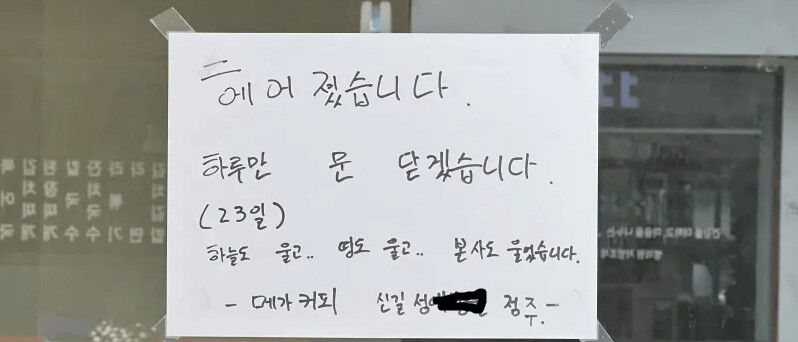 헤어졌습니다.
하루만 문 닫겠습니다.
(23일)
하늘도 울고.. 땅도 울고.. 본사도 울었습니다.
- 메가커피 신길 성 점주.-